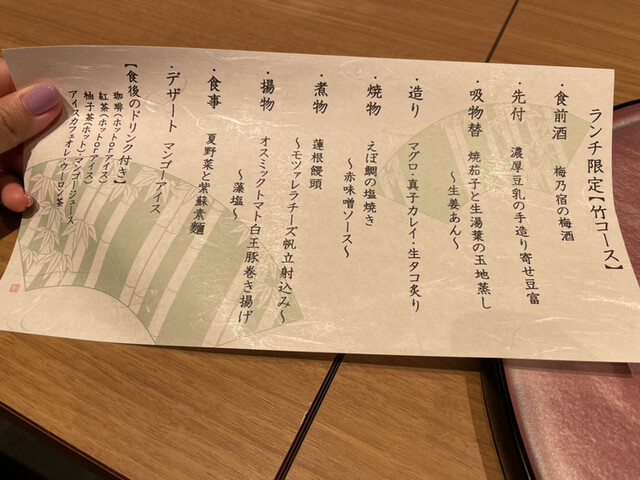 ランチ限定【竹コース】
・食前酒 梅乃宿の梅酒
・先付 濃厚豆乳の手造り寄せ豆富
・吸物替 焼茄子と生湯葉の玉地蒸し
～生姜あん～
・造り マグロ・真子カレイ・生タコ炙り
・焼物 えぼ鯛の塩焼き
～赤味噌ソース～
・煮物 蓮根饅頭
～モツァレラチーズ帆立射込み～
・揚物 オスミックトマト白王豚巻き揚げ
～藻塩～
・食事 夏野菜と紫蘇素麺
・デザート マンゴーアイス
【食後のドリンク付き】
珈琲（ホットorアイス）
紅茶（ホットorアイス）
柚子茶（ホット）・マンゴージュース
アイスカフェオレ・ウーロン茶